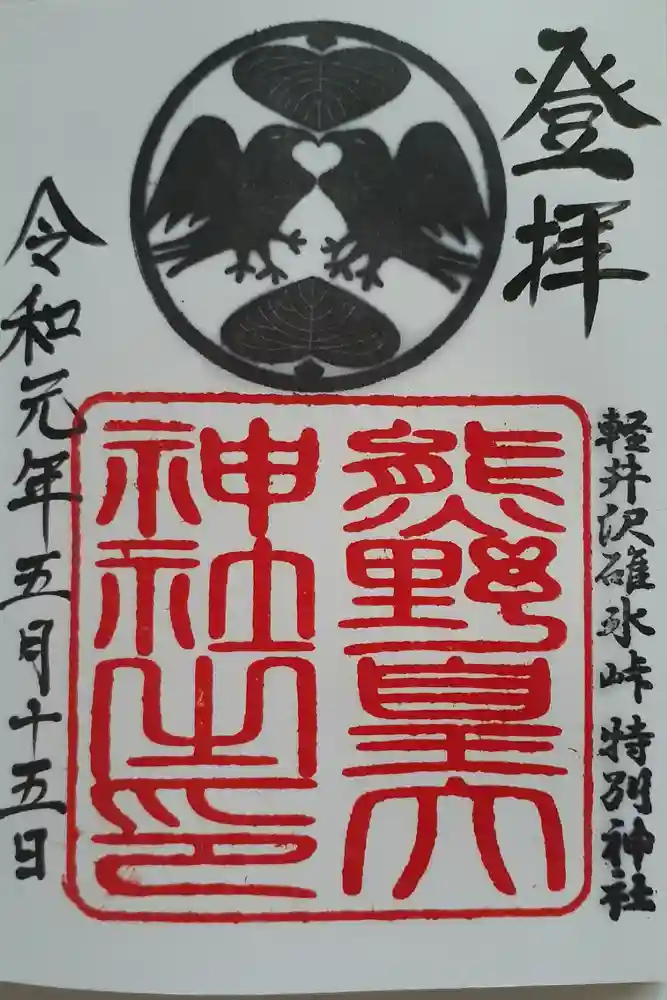 登拝
軽井沢碓氷峠特別神社
熊野皇大
神社之印
令和元年五月十五日